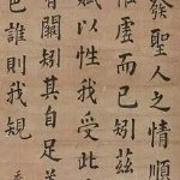 發聖人之情順
虛而已矧茲
賦以性我受此
有關矧其自足
色誰則我規